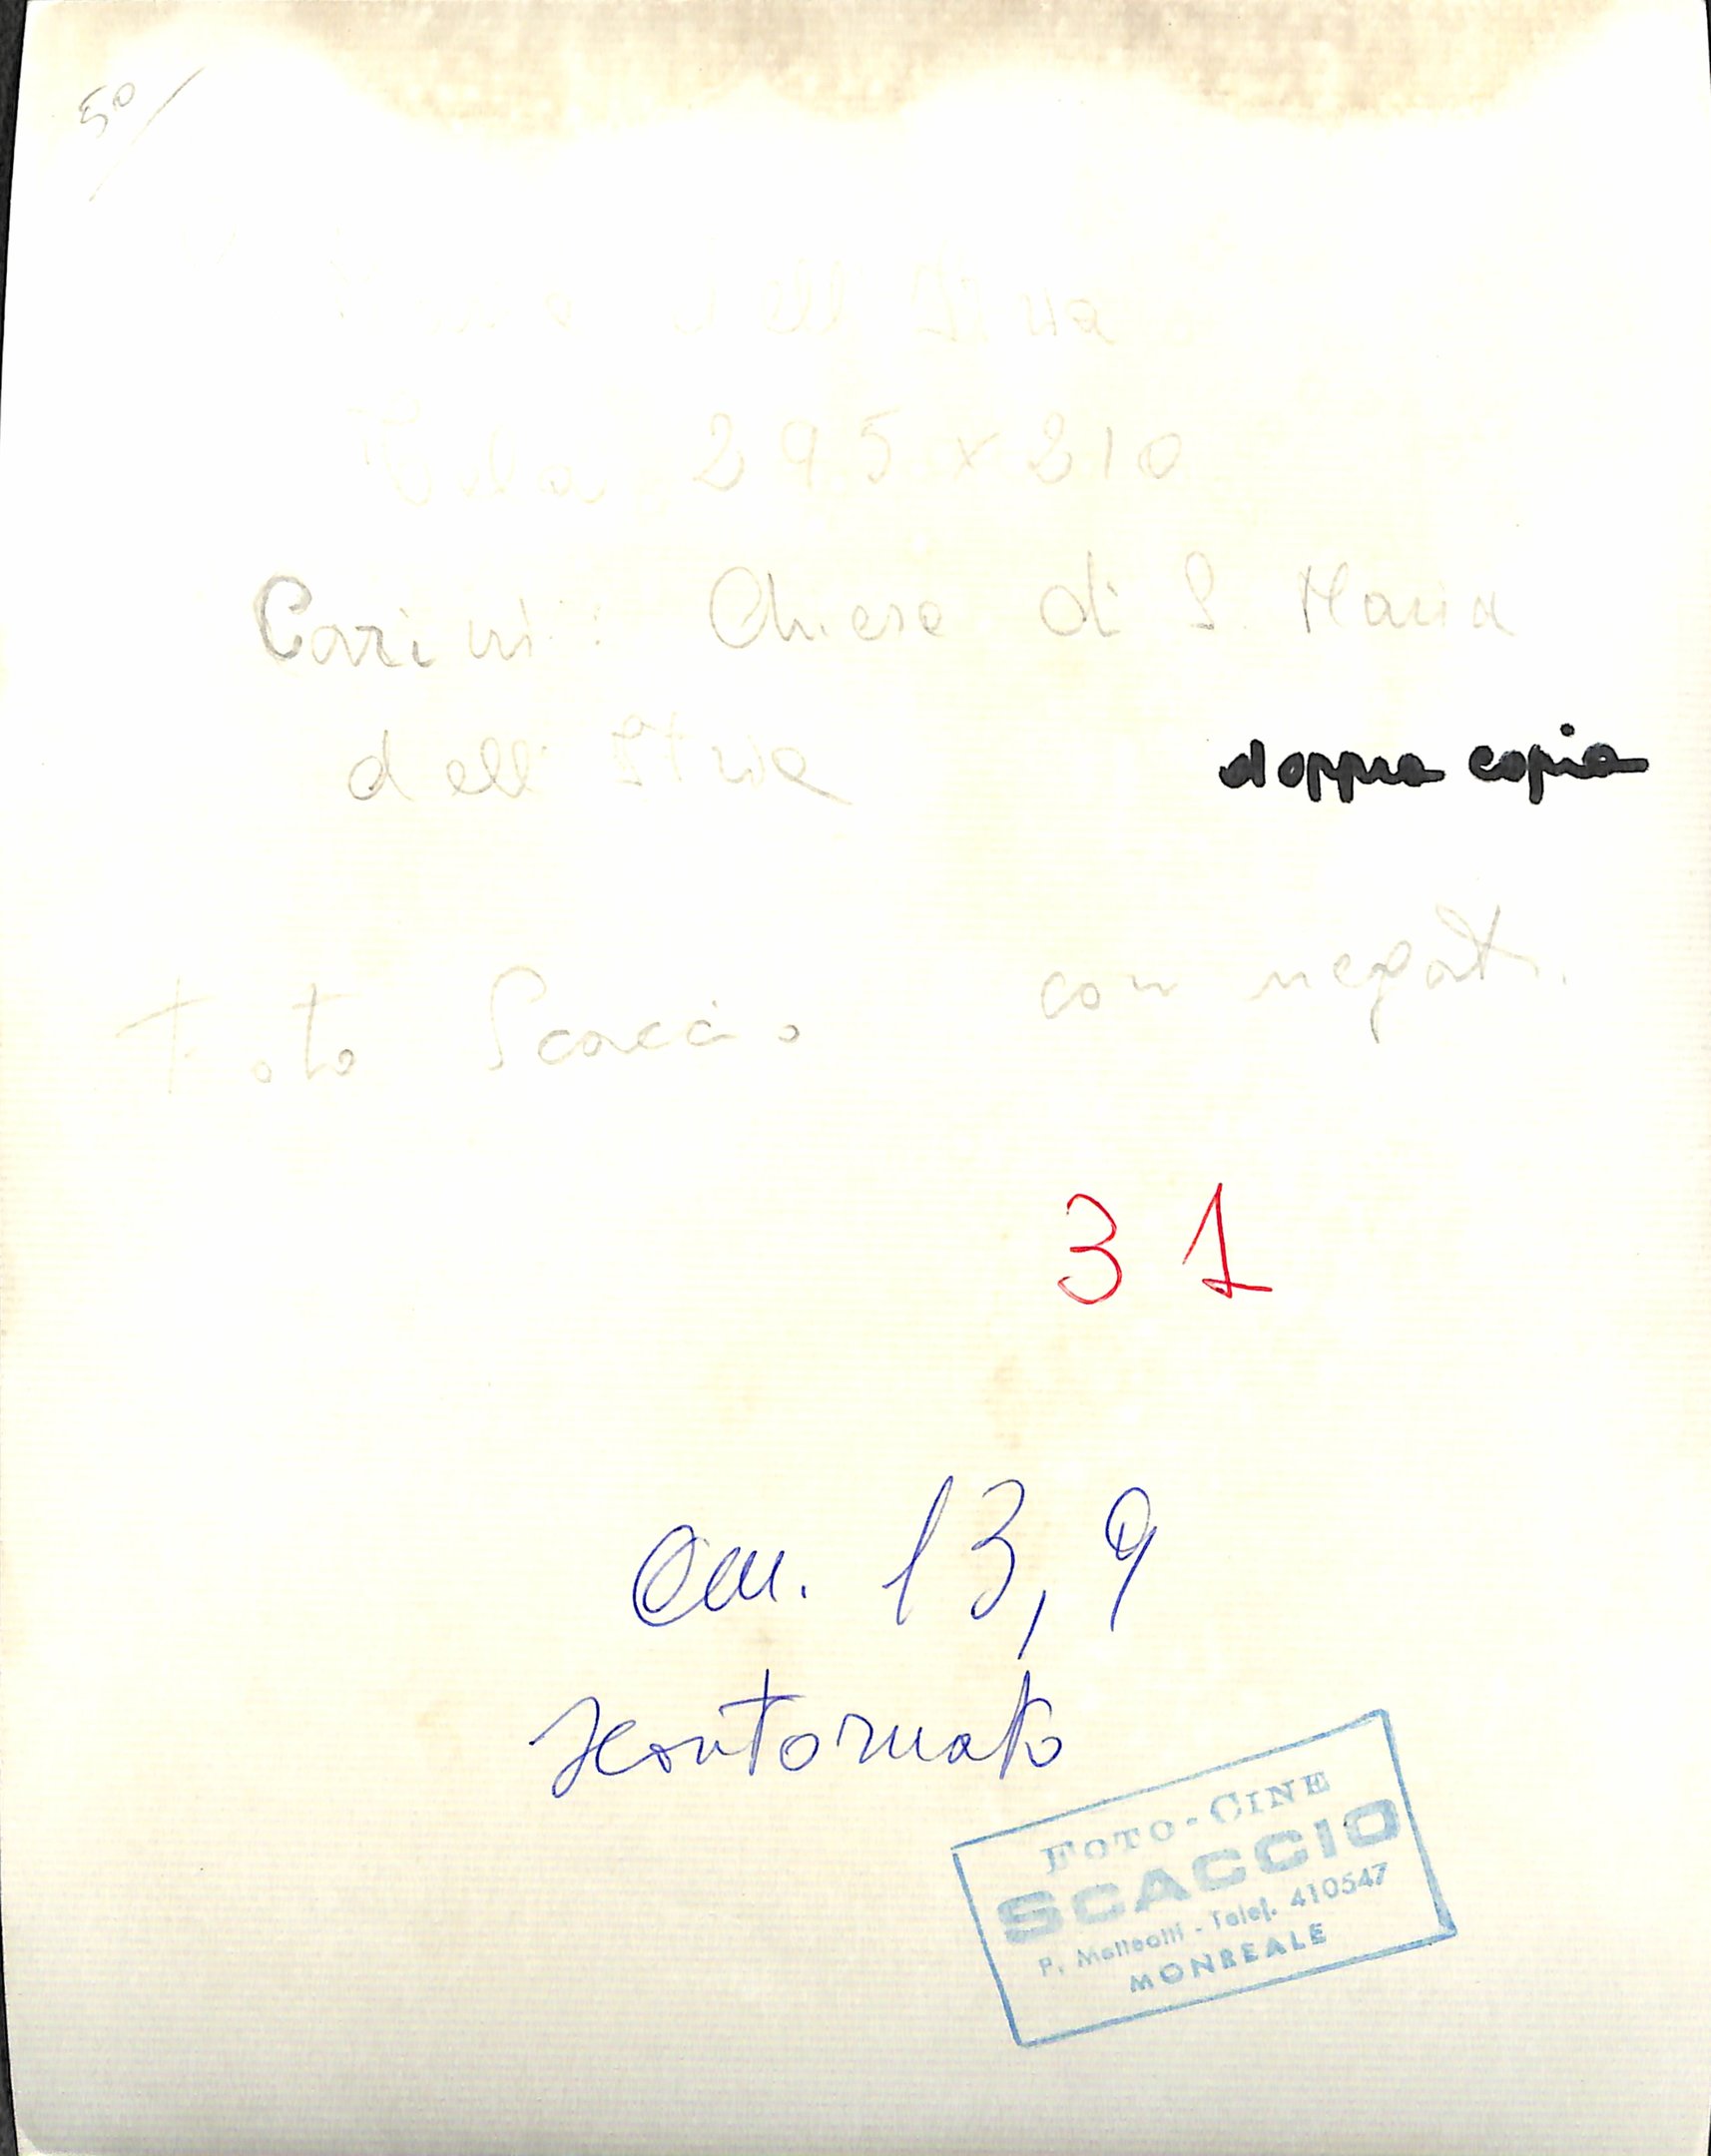 50/
dell'Itria
Tela 295 x 210
Carini: Chiesa di S. Maria
dell'Itria
doppia copia
Foto Scaccio con negat.
31
cm. 13,9
scontornato
FOTO-CINE
SCACCIO
P. Matteotti - Telef. 410547
MONREALE